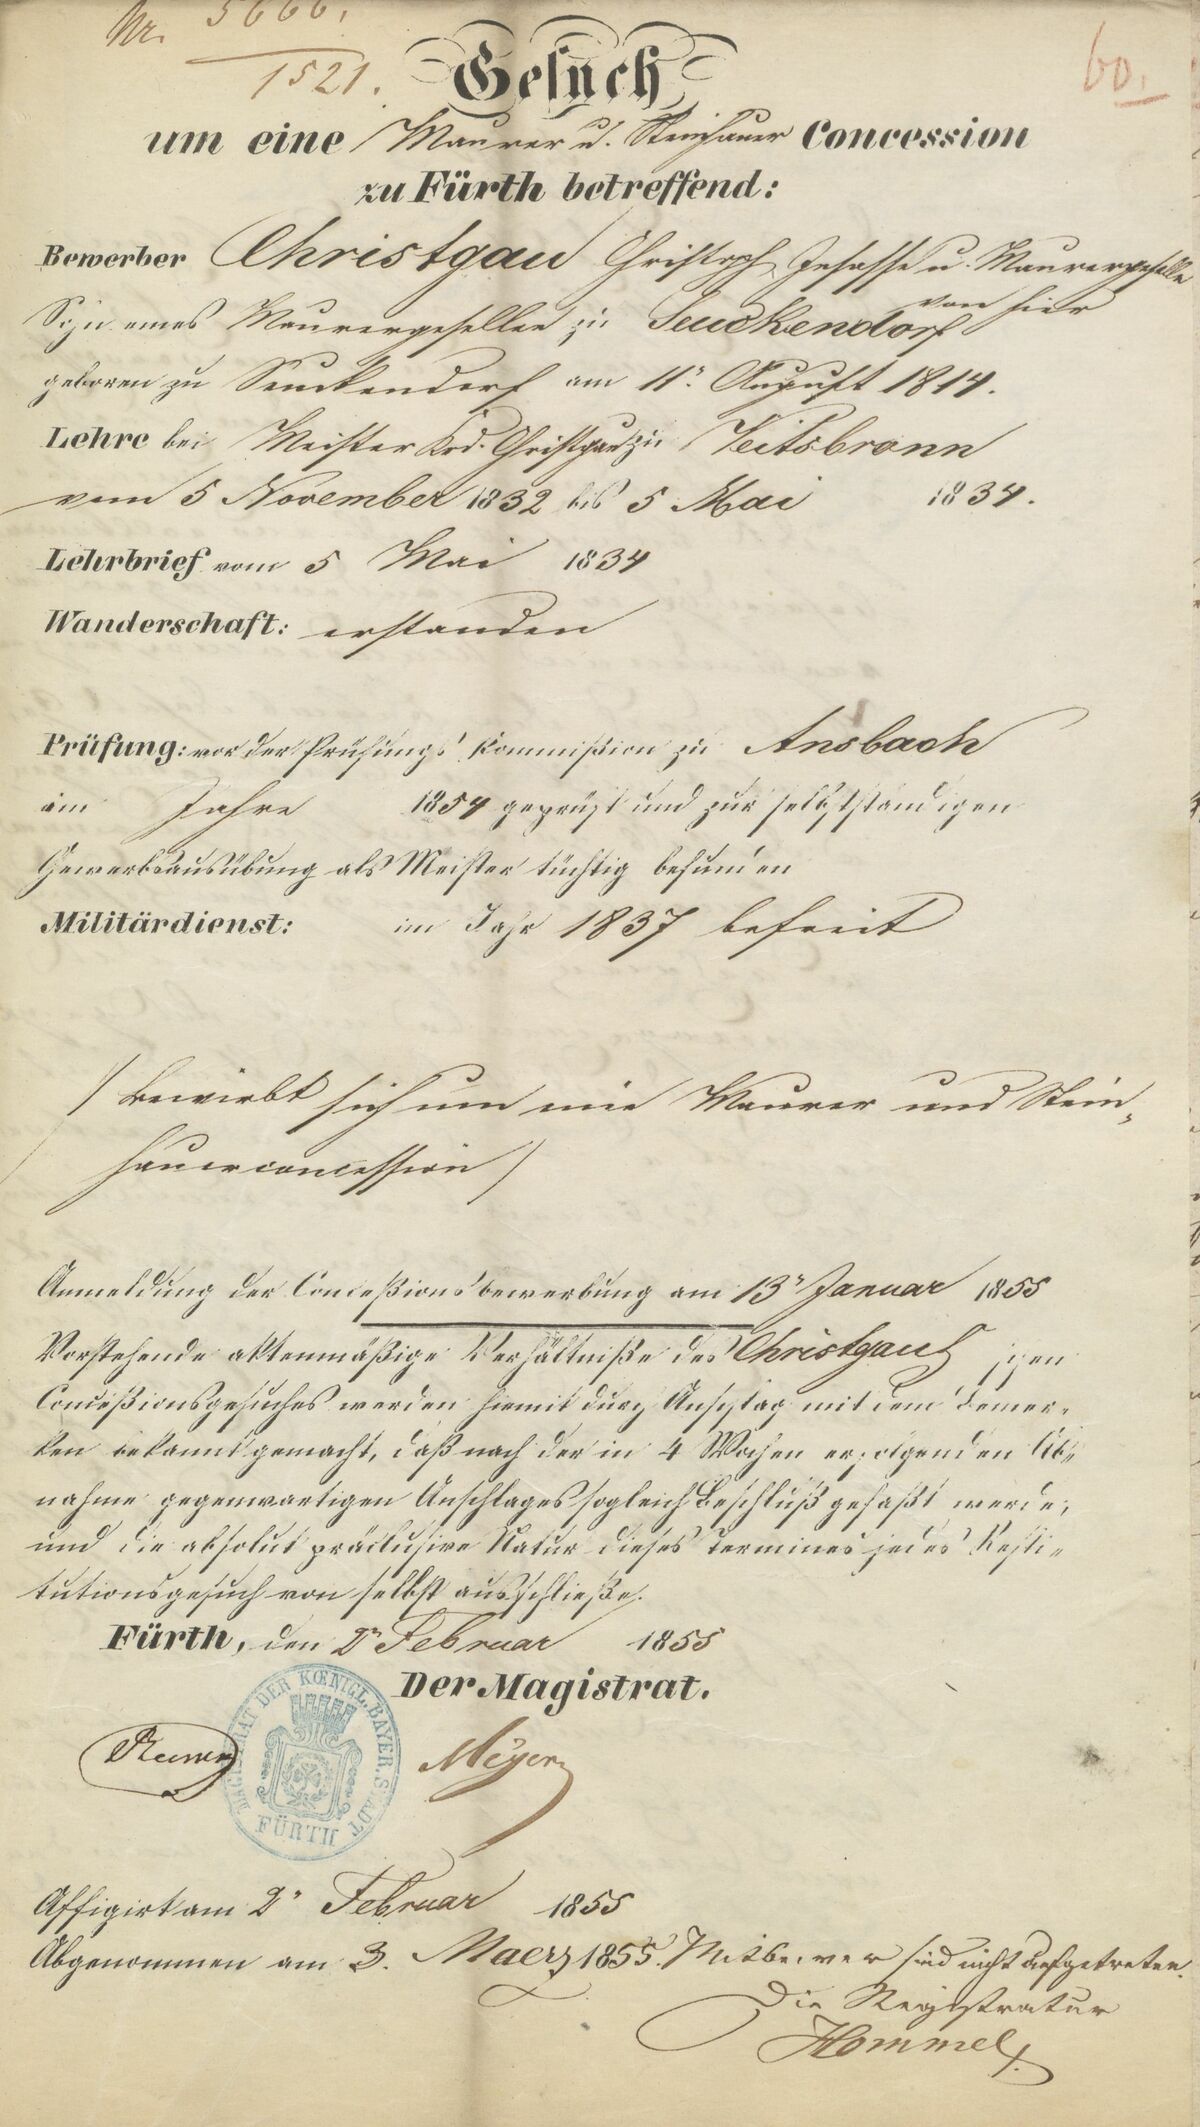 Nr. 5666.
1521.
60.
Gesuch
um eine Maurer u. Steinhauer Concession
zu Fürth betreffend:
Bewerber Christgau Christoph Insasse u. Maurergeselle
von hier
Sohn eines Maurergesellen zu Seuckendorf
geboren zu Seuckendorf am 11n August 1814.
Lehre bei Meister Krd. Christgau zu Veitsbronn
vom 5 November 1832 bis 5 Mai 1834.
Lehrbrief vom 5 Mai 1834
Wanderschaft: erstanden
Prüfung: vor der Prüfungs Kommißion zu Ansbach
im Jahre 1854 geprüft und zur selbstständigen
Gewerbsausübung als Meister tüchtig befunden
Militärdienst: im Jahr 1837 befreit
/ bewirbt sich um eine Maurer und Stein-
hauerconcession /
Anmeldung der Conceßionsbewerbung am 13n Januar 1855
Vorstehende aktenmäßige Verhältniße des Christgau'schen
Conceßionsgesuches werden hiemit durch Anschlag mit dem Bemer-
ken bekannt gemacht, daß nach der in 4 Wochen erfolgenden Ab-
nahme gegenwärtigen Anschlages sogleich Beschluß gefaßt werde,
und die absolut präclusive Natur dieses Termines jedes Resti-
tutionsgesuch von selbst ausschließe.
Fürth, den 2n Februar 1855
Der Magistrat.
MAGISTRAT DER KŒNIGL. BAYER. STADT
FÜRTH
Meyer
Affigirt am 2n Februar 1855
Abgenommen am 3. Maerz 1855. Mitbewer sind nicht aufgetreten.
Die Registratur
Hommel